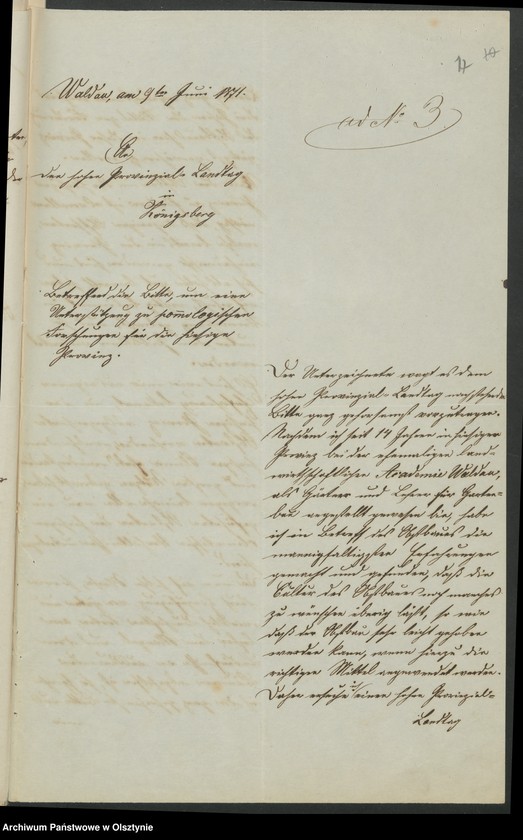 4 10
ad No 3.
Waldau, am 9ten Juni 1871.
An
den hohen Provinzial-Landtag
in
Königsberg
Betreffend die Bitte, um eine
Unterstützung zu pomologischen
Forschungen für die hiesige
Provinz.
Der Unterzeichnete wagt es dem
hohen Provinzial-Landtag nachstehende
Bitte ganz gehorsamst vorzutragen.
Nachdem ich seit 14 Jahren in hiesiger
Provinz bei der ehemaligen land-
wirthschaftlichen Academie Waldau,
als Gärtner und Lehrer für Garten-
bau angestellt gewesen bin, habe
ich in Betreff des Obstbaues die
mannigfaltigsten Erfahrungen
gemacht und gefunden, daß die
Cultur des Obstbaues noch manches
zu wünschen übrig läßt, so wie
daß der Obstbau sehr leicht gehoben
werden kann, wenn hierzu die
richtigen Mittel angewendet werden.
Daher ersuche ich einen hohen Provinzial-
Landtag
Archiwum Państwowe w Olsztynie